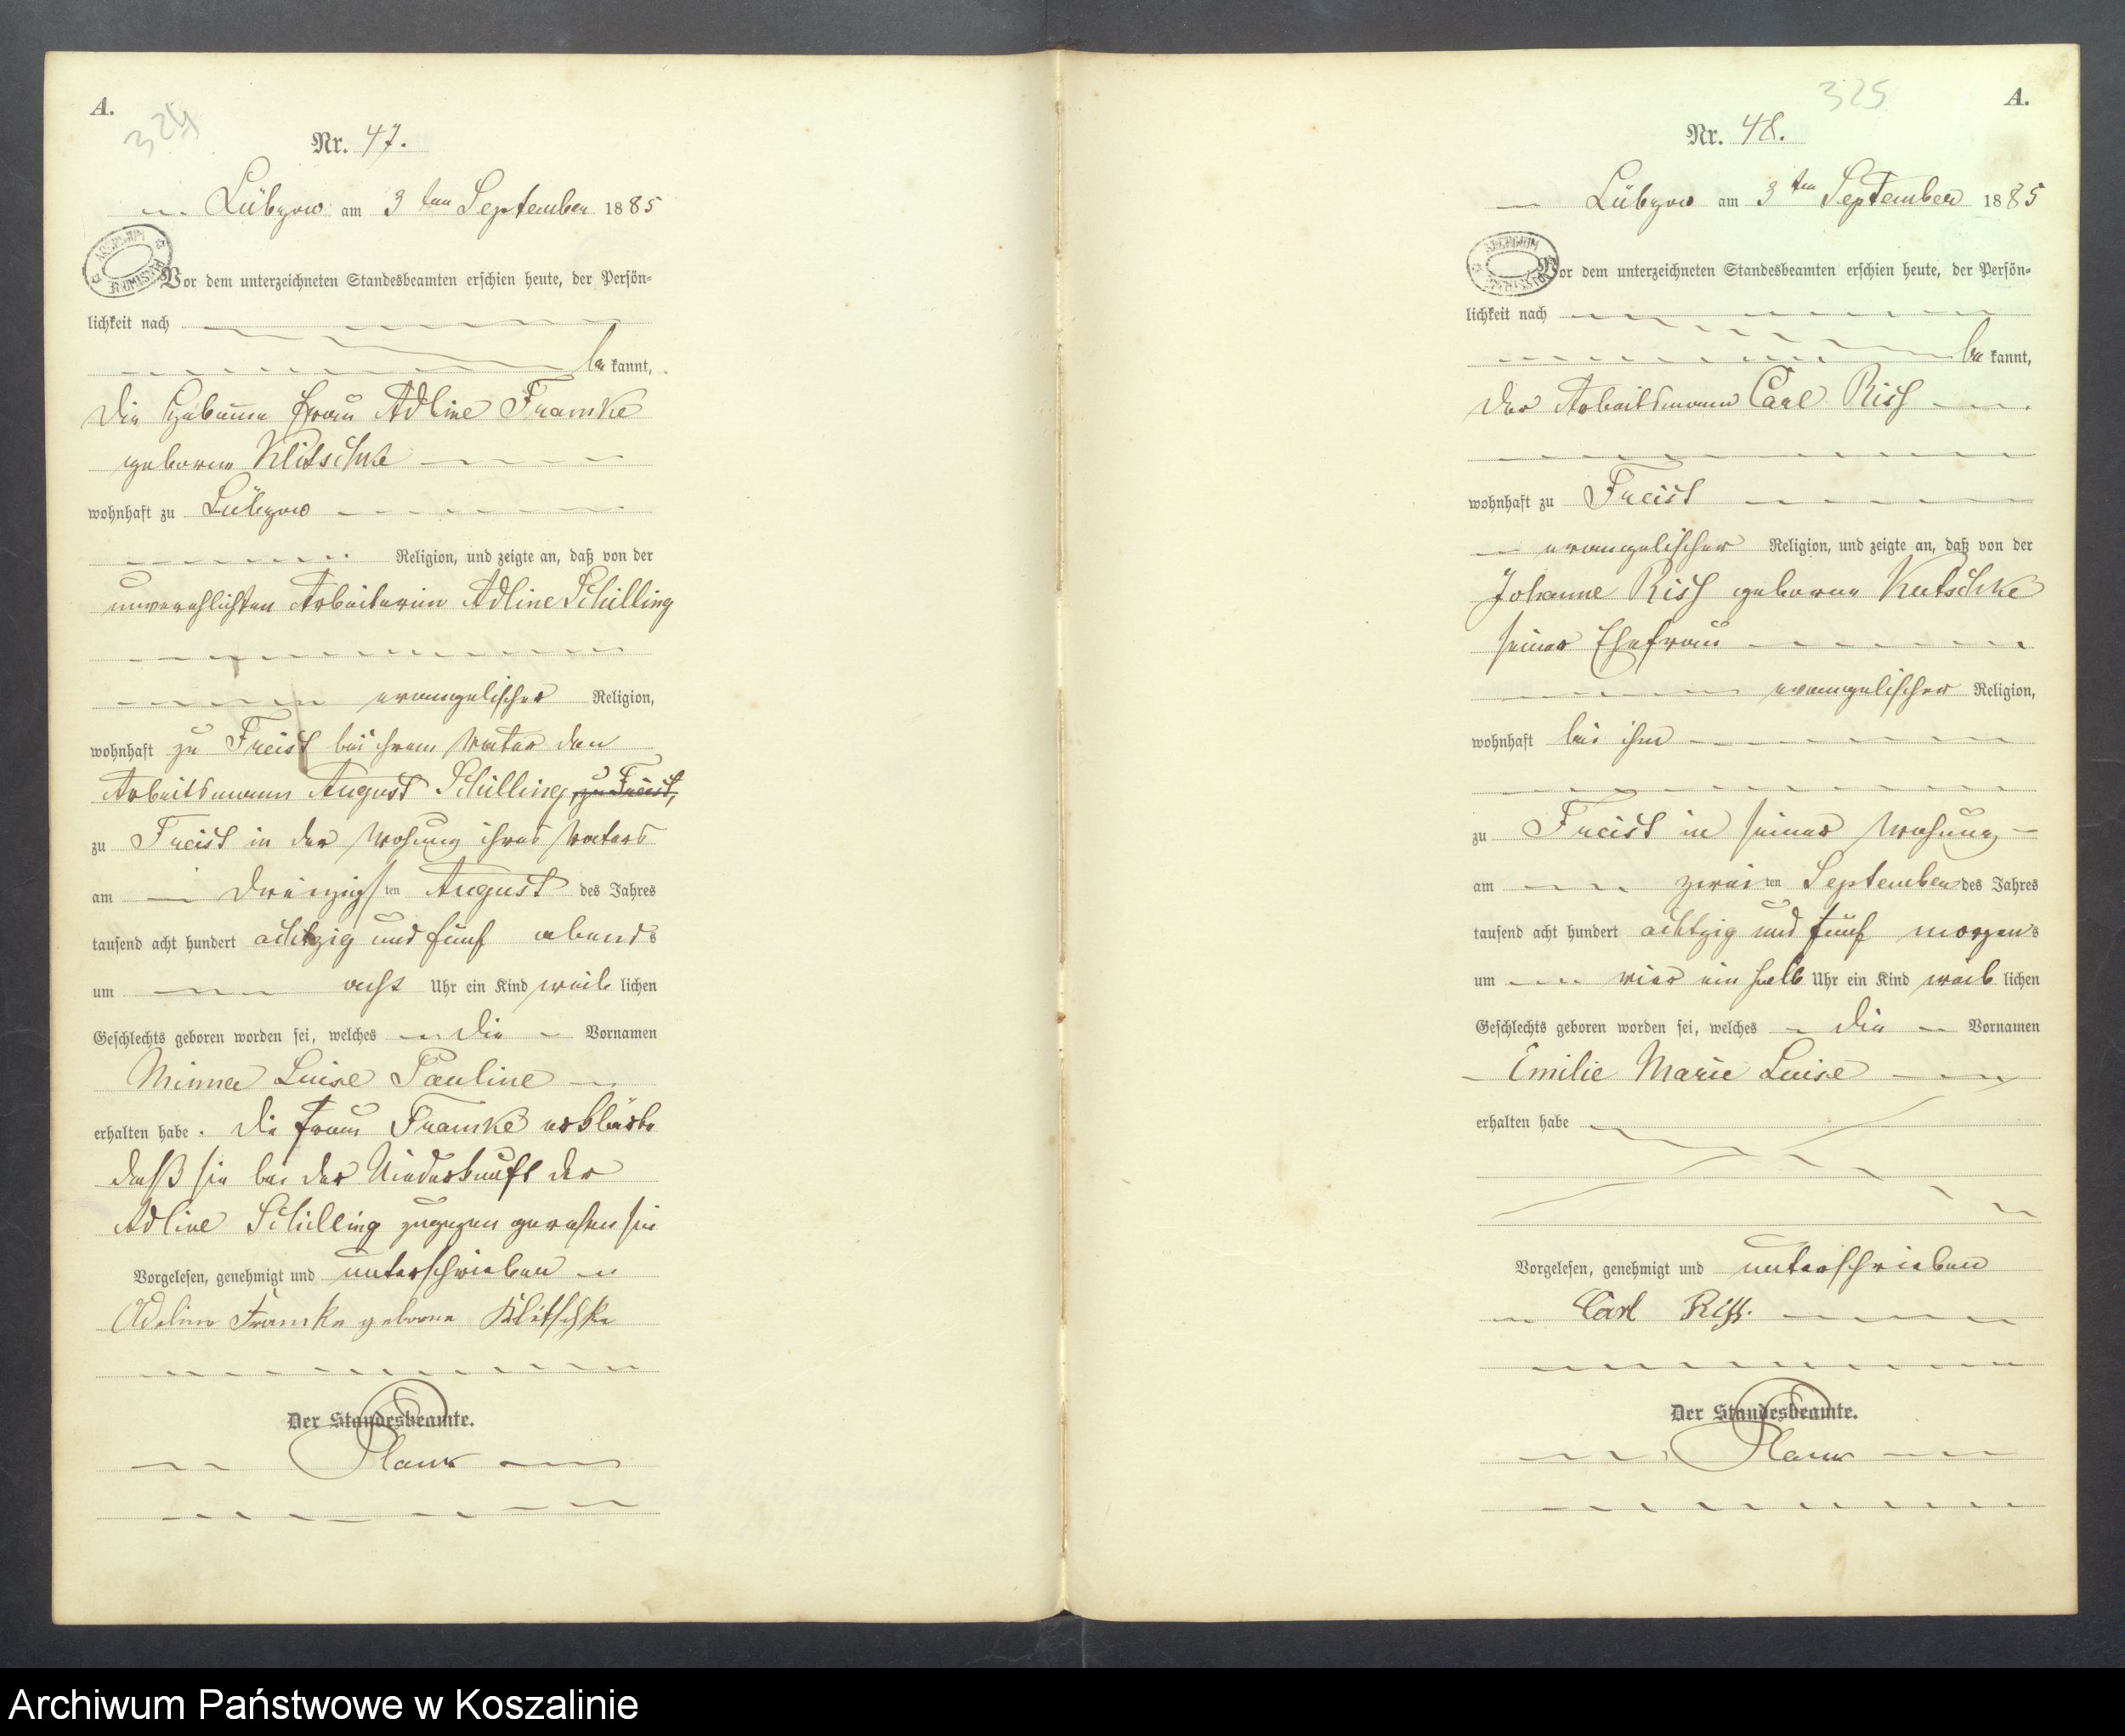 A.
324
Nr. 47.
Lübzow am 3 ten September 1885
Vor dem unterzeichneten Standesbeamten erschien heute, der Persön-
lichkeit nach
be kannt,
die Hebamme Frau Adline Framke
geborne Klitschke
wohnhaft zu Lübzow
Religion, und zeigte an, daß von der
unverehlichten Arbeiterin Adline Schilling
evangelischer Religion,
wohnhaft zu Freist bei ihrem Vater den
Arbeitsmann August Schilling, zu Freist,
zu Freist in der Wohung ihres Vaters
am dreizigsten August des Jahres
tausend acht hundert achtzig und fünf abends
um acht Uhr ein Kind weib lichen
Geschlechts geboren worden sei, welches die Vornamen
Minna Luise Pauline
erhalten habe. die Frau Framke erklärte
daß sie bei der Niederkunft der
Adline Schilling zugegen gewesen sei
Vorgelesen, genehmigt und unterschrieben
Adeline Framke geborne Klitschke
Der Standesbeamte.
A.
325
Nr. 48.
Lübzow am 3 ten September 1885
Vor dem unterzeichneten Standesbeamten erschien heute, der Persön-
lichkeit nach
be kannt,
der Arbeitsmann Carl Riss
wohnhaft zu Freist
evangelischer Religion, und zeigte an, daß von der
Johanne Riss geborne Kutschke
seiner Ehefrau
evangelischer Religion,
wohnhaft bei ihm
zu Freist in seiner Wohung
am zweiten September des Jahres
tausend acht hundert achtzig und fünf morgens
um vier ein halb Uhr ein Kind weib lichen
Geschlechts geboren worden sei, welches die Vornamen
Emilie Marie Luise
erhalten habe
Vorgelesen, genehmigt und unterschrieben
Carl Riss.
Der Standesbeamte.
Archiwum Państwowe w Koszalinie